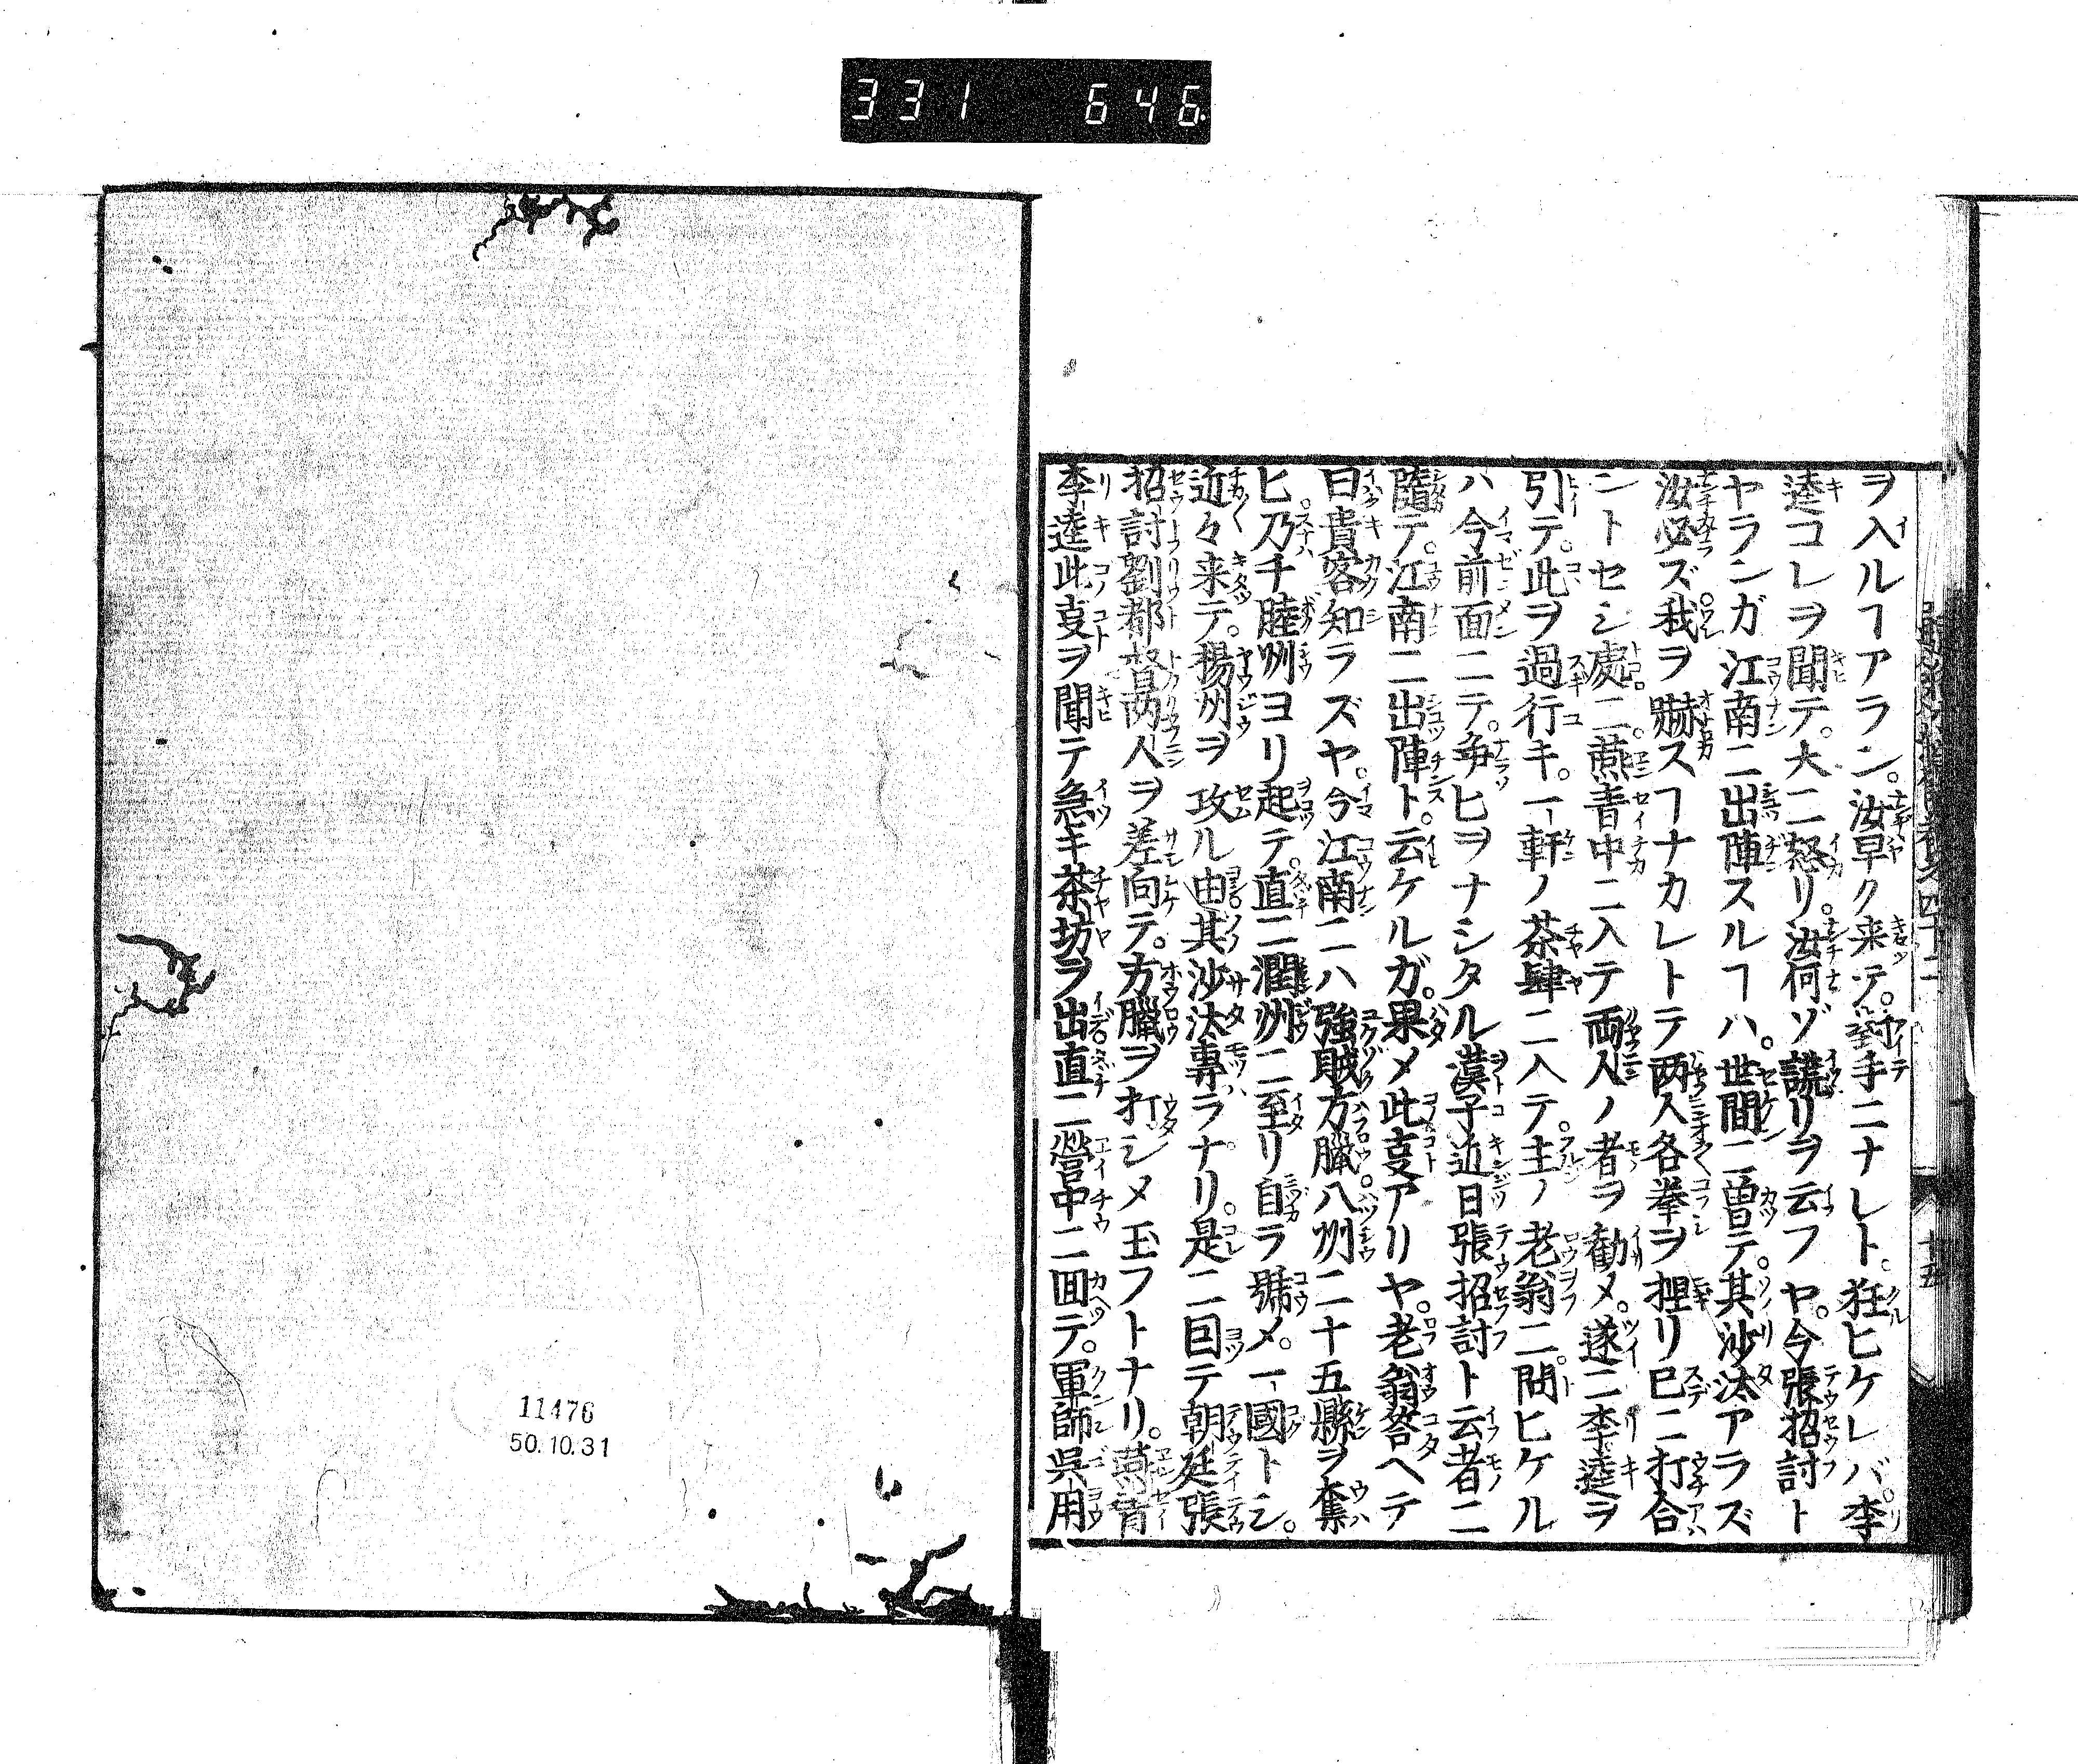 331 646
ヲ入ルヿアラン。汝早ク来テ。對手ニナレト。狂ヒケレバ。李
逵コレヲ聞テ。大ニ怒リ。汝何ゾ謊リヲ云フヤ。今張招討ト
ヤランガ江南ニ出陣スルヿハ。世間ニ曽テ。其沙汰アラズ
汝必ズ我ヲ嚇スヿナカレトテ两人各拳ヲ捏リ已ニ打合
ントセシ處ニ。燕青中ニ入テ両人ノ者ヲ勧メ。遂ニ李逵ヲ
引テ。此ヲ過行キ。一軒ノ茶肆ニ入テ。主ノ老翁ニ。問ヒケル
ハ今前面ニテ。争ヒヲナシタル漢子近日張招討ト云者ニ
隨テ。江南ニ出陣ト。云ケルガ。果メ此叓アリヤ。老翁答ヘテ
曰貴客知ラズヤ。今江南ニハ強賊方臘。八州二十五縣ヲ奪
ヒ。乃チ睦州ヨリ起テ。直ニ潤州ニ至リ自ラ號メ。一國トシ。
近々来テ。揚州ヲ攻ル由。其沙汰專ラナリ。是ニ因テ朝廷張
招討劉都督两人ヲ差向テ。方臘ヲ打シメ玉フトナリ。燕青
李逵此叓ヲ聞テ急キ茶坊ヲ出直ニ營中ニ囬テ。軍師呉用
四十二
十五
11476
50.10.31